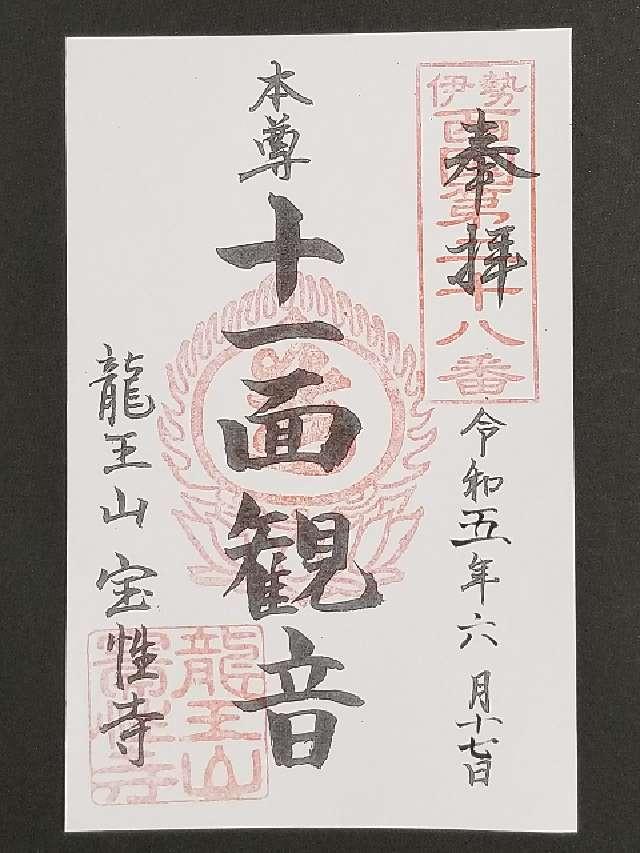 奉拝
伊勢
西国第三十八番
令和五年六月十七日
本尊
十一面観音
龍王山宝性寺
龍王山
寳性寺